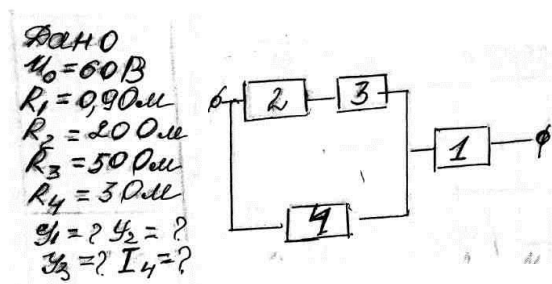 Дано
U₀=60В
R₁=0,9Ом
R₂=20Ом
R₃=50Ом
R₄=3Ом
У₁=? У₂=?
У₃=? I₄=?
2 3
1
4